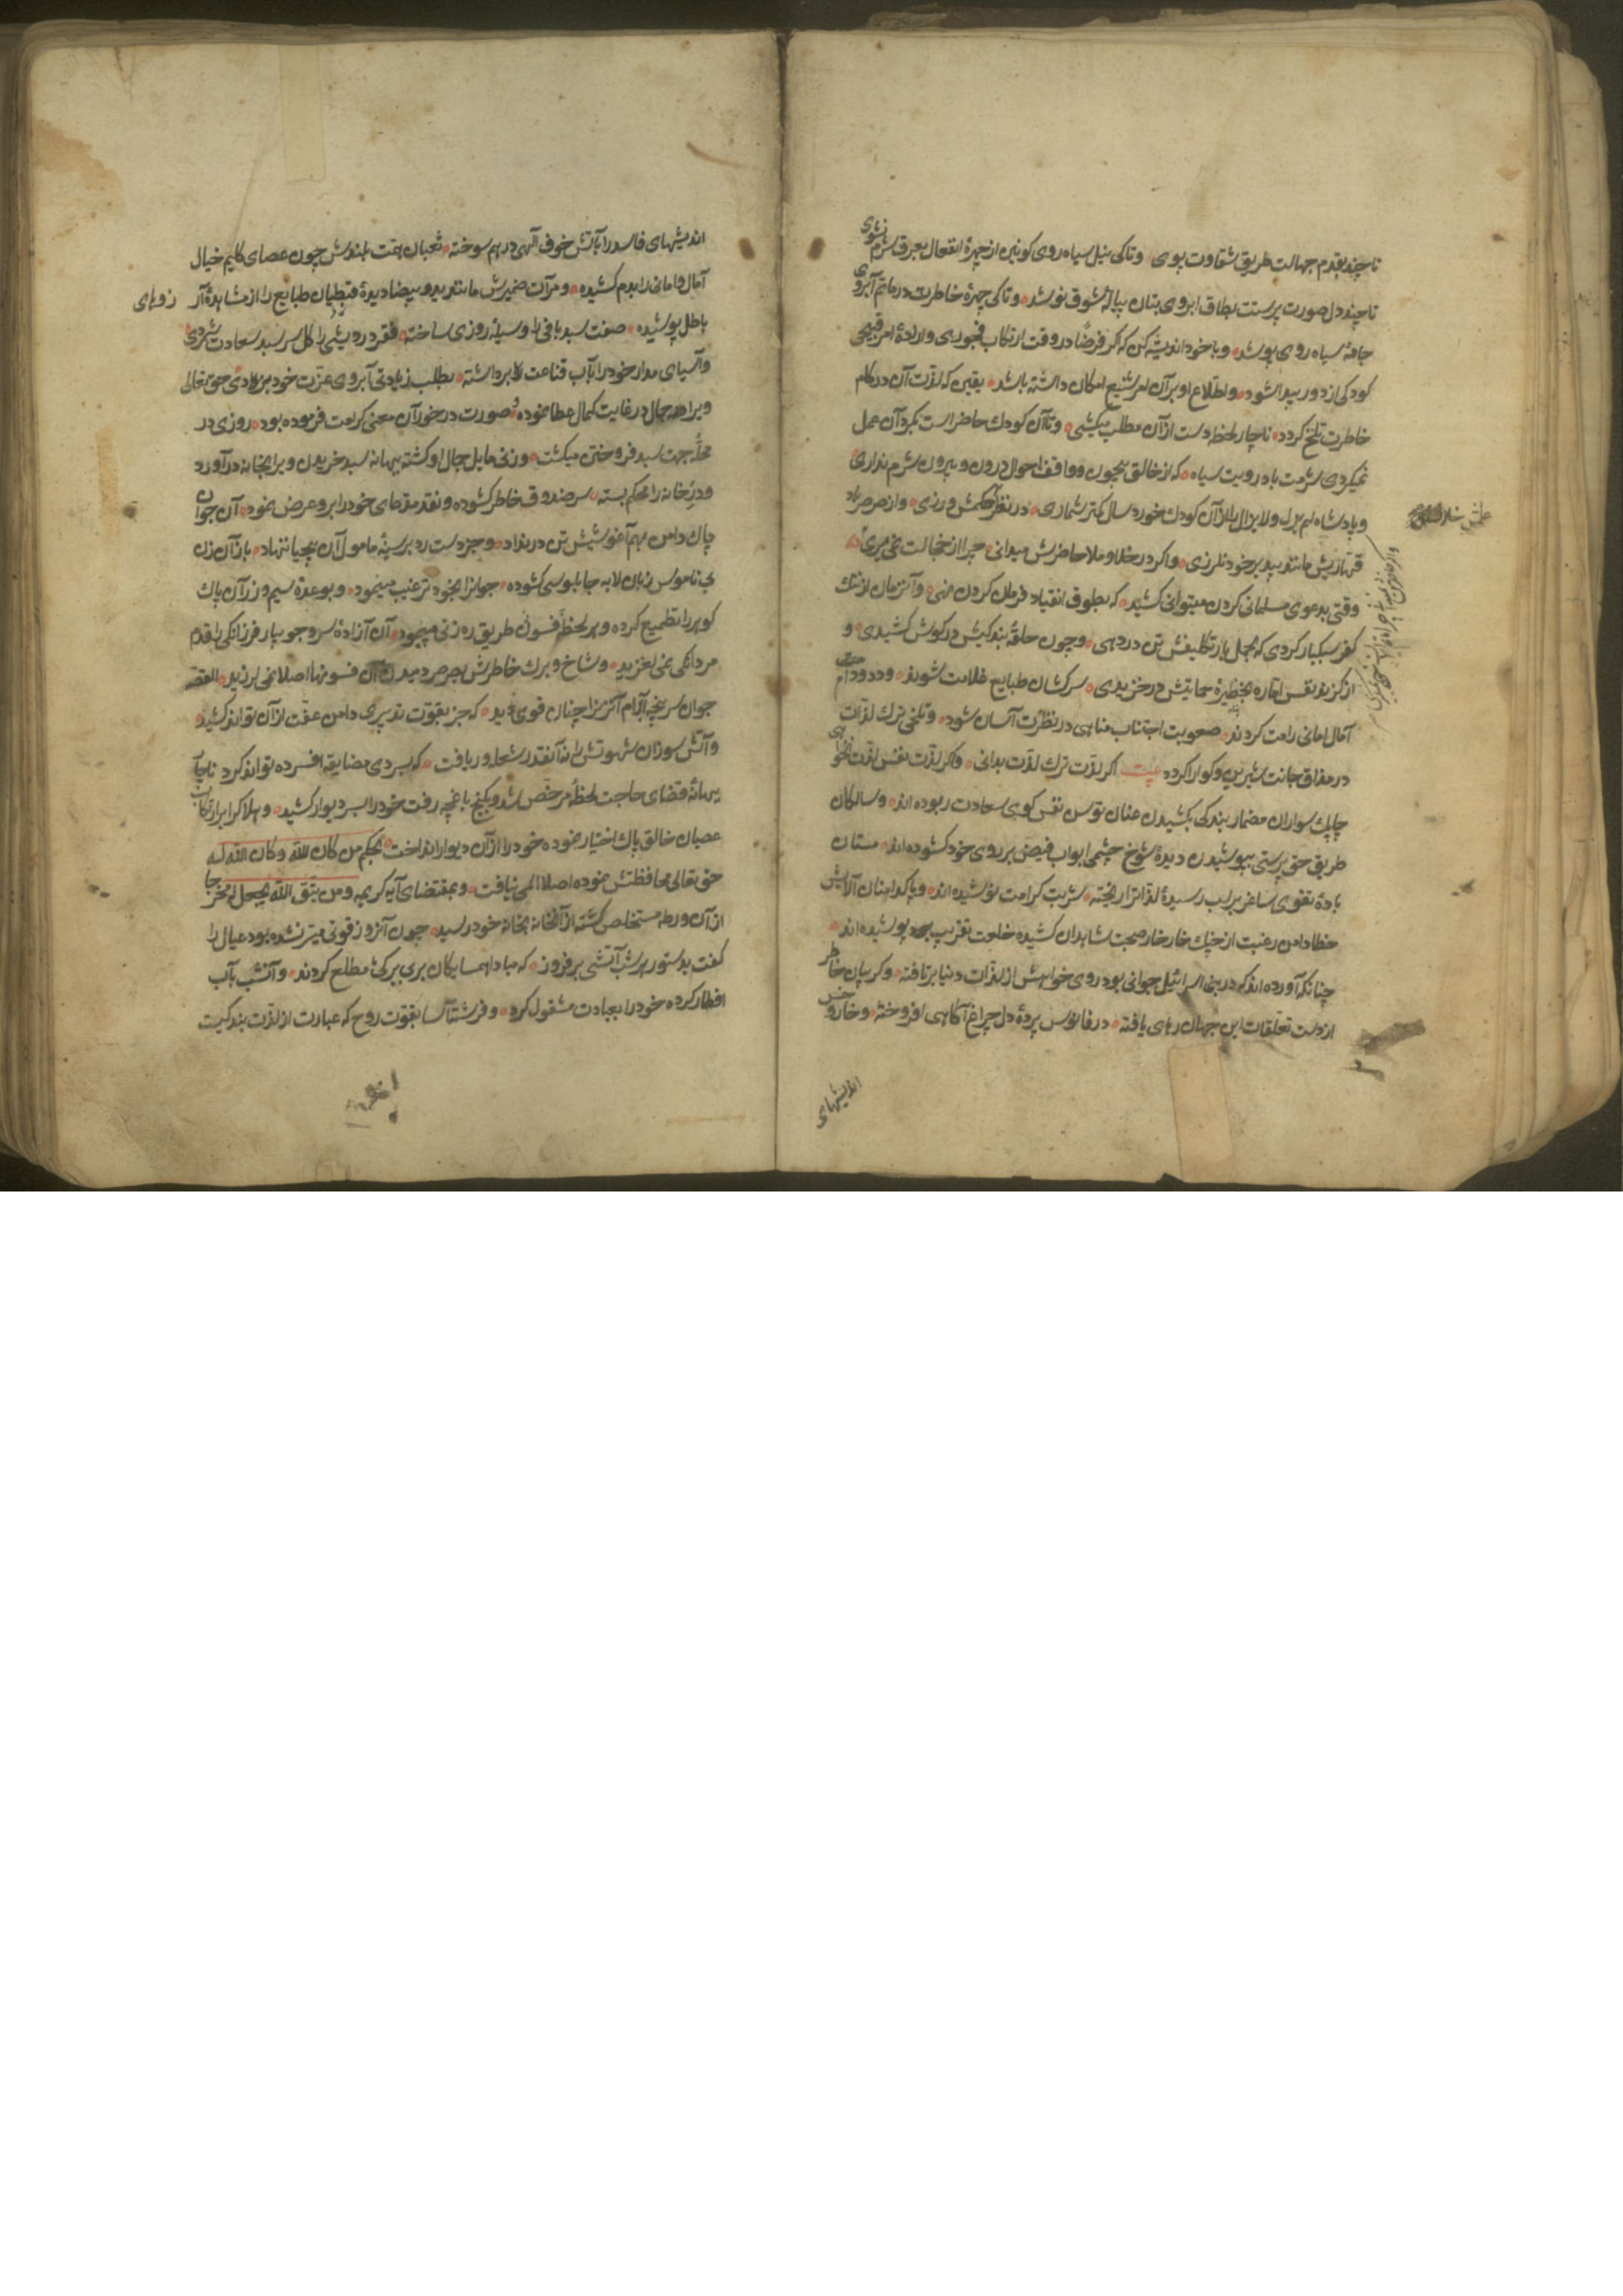 تا چند بقدم جهالت طریق شقاوت پوی وتاکی بنیل سیاه روی کونین از چهرهٔ انفعال بعرق شرم نشوی
تا چند دل صورت پرستت بطاق ابروی بتان پیالهٔ شوق نوشد وتاکی چهرهٔ خاطرت در ماتم آبروی
جامهٔ سیاه روی پوشد وبا خود اندیشه کن که اکر فرضًا در وقت ارتکاب فجوری وارادهٔ امر قبیحی
کودکی از دور پیدا شود واطلاع او بر آن امر شنیع امکان داشته باشد یقین که لذت آن در کام
خاطرت تلخ کردد ناچار لحظه دست از آن مطلب میکشی وتا آن کودك حاضر است بکرد آن عمل
نمیکردی شرمت باد رویت سیاه که از خالق بیچون وواقف احوال درون وبیرون شرم نداری
وپادشاه لم یزل ولا یزال را از آن کودك خورد سال کمتر شماری در نظر حکمش ورزی واز صرصر باد
قهاریش مانند بید بر خود نلرزی واکر در خلا وملا حاضرش میدانی چرا از خجالت نمی میری
وقتی بدعوی مسلمانی کردن میتوانی کشید که بطوق انقیاد فرمان کردن نهی وآنزمان از ننك
کفر سبکبار کردی که بحمل بار تکلیفش تن در دهی وچون حلقهٔ بندکیش در کوش کشیدی و
از کزند نفس اماره بخطیرهٔ حمایتش در خزیدی سرکشان طبایع غلامت شوند ودد ودام
آمال امانی رامت کردند صعوبت اجتناب مناهی در نظرت آسان شود وتلخی ترك لذات
در مذاق جانت شیرین وکوارا کردد بیت اکر لذت ترك لذت بدانی دکر لذت نفس لذت نخوانی
چابك سواران مضمار بندکی بکشیدن عنان توسن نفس کوی سعادت ربوده اند وسالکان
طریق حق پرستی بپوشیدن دیدهٔ شوخ چشمی ابواب فیض بر روی خود کشوده اند مستان
بادهٔ تقوی ساغر بر لب رسیدهٔ لذاترا ریخته شربت کرامت نوشیده اند وپاکدامنان آلایش
خطا دامن رغبت از چنك خار خار صحبت شاهدان کشیده خلعت تقریب پوشیده اند
چنانکه آورده اند که در بنی اسرائیل جوانی بود روی خواهش از لذات دنیا برتافته وکریبان خاطر
از دست تعلقات این جهان رهای یافته در فانوس پردهٔ دل چراغ آکاهی افروخته وخار وخس
اندیشهای
اندیشهای فاسد را بآتش خوف آلهی در هم سوخته ثعبان همت بلندش چون عصای کلیم خیال
آمال وامانی را بدم کشیده ومرآت ضمیرش مانند ید بیضا دیدهٔ قبطیان طبایع را از مشاهدهٔ آرزوهای
باطل پوشیده صفت سبد بافی را وسیلهٔ روزی ساخته فقر ودرویشی را کل سر سبد سعادت شمردی
وآسیای مدار خود را بآب قناعت برداشته بطلب زیادتی آبروی عزت خود نریختی حق تعالی
ویرا جمال در غایت کمال عطا نموده صورت در خور آن معنی کرامت فرموده بود روزی در
محلهٔ جهت سبد فروختن میکشت وزنی مایل جمال او کشته ببهانه سبد خریدن ویرا بخانه در آورد
ودر خانه را محکم بسته سر صندوق خاطر کشوده ونقد مدعای خود را برو عرض نمود آن جوان
پاك دامن بهم آغوشیش تن در نداد وجز دست رد بر سینهٔ مامول آن بیحیا ننهاد باز آن زن
بی ناموس زبان لابه چابلوسی کشوده جوانرا بخود ترغیب مینمود وبوعدهٔ سیم وزر آن پاك
کوهر را تطمیع کرده وهر لحظهٔ فسون طریق ره زنی میپیمود آن آزادهٔ سرو جویبار فرزانکی را قدم
مردانکی نمی لغزید وشاخ وبرك خاطرش بصرصر دمیدن آن فسونها اصلا نمی لرزید القصه
جوان سر پنچهٔ ابرام آنزنرا چنان قوی دید که جز بقوت تدبیری دامن عفت از آن تواند کشید
وآتش سوزان شهوتش را نه آنقدر شعله ور یافت که بسردی مضایقه افسرده تواند کرد ناچار
ببهانهٔ قضای حاجت لحظهٔ مرخص شد وبکنج باغچه رفت خود را بسر دیوار کشید وهلاك را بر ارتکاب
عصیان خالق پاك اختیار نموده خود را از آن دیوار انداخت بحکم من کان لله وکان الله له
حق تعالی محافظتش نموده اصلا المی نیافت وبمقتضای آیه کریمه ومن یتق الله یجعل له مخرجا
از آن ورطه مستخلص کشته از آنخانه بخانه خود رسید چون آنروز قوتی میسر نشده بود عیال را
کفت بدستور هر شب آتشی برفروز که مبادا همسایکان بر بی برکی مطلع کردند وآنشب بآب
افطار کرده خود را بعبادت مشغول کرد وفرشته آسا بقوت روح که عبارت از لذت بندکیست